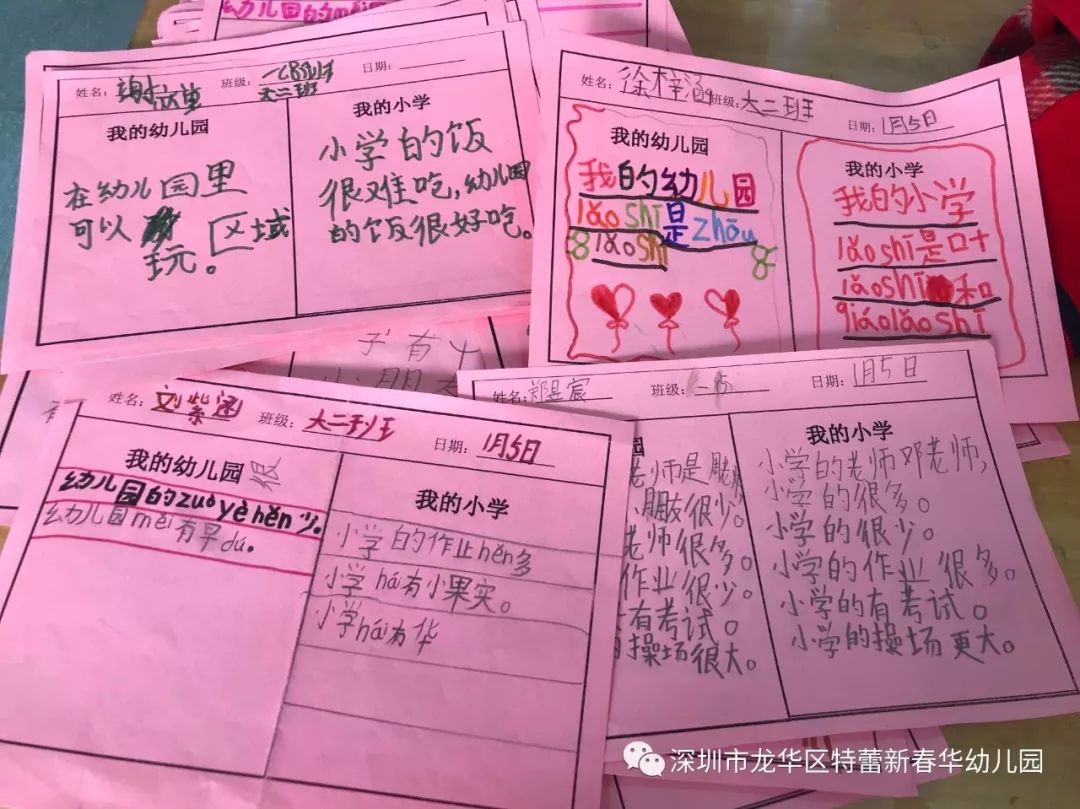 幼儿园的měi
姓名：
班级：一(8)班
大二班
日期：
我的幼儿园
在幼儿园里
可以
玩。区域
我的小学
小学的饭
很难吃，幼儿园
的饭很好吃。
姓名：徐梓涵
班级：大二班
日期：1月5日
我的幼儿园
我的幼儿园
lǎoshī是zhōu
lǎoshī
我的小学
我的小学
lǎoshī是叶
lǎoshī和
qiáolǎoshī
子有
小朋
姓名：刘紫涵
班级：大二班
日期：1月5日
我的幼儿园
很
幼儿园的zuoyèhěn少。
幼儿园měi有早dú。
我的小学
小学的作业hěn多
小学hái有小果实。
小学hái有华
姓名：郑昱宸
班级：
日期：1月5日
园
老师是
朋友很少。
老师很多。
作业很少。
有考试。
操场很大。
我的小学
小学的老师邓老师，
小学的很多。
小学的很少。
小学的作业很多。
小学的有考试。
小学的操场更大。
深圳市龙华区特蕾新春华幼儿园